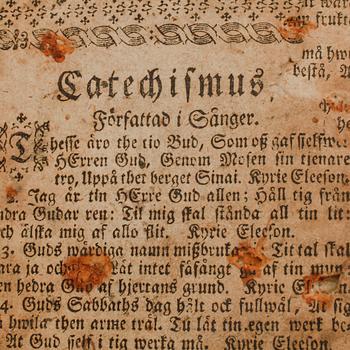 må hw
bestå, A
Catechismus,
Författad i Sånger.
Thesse äro the tio Bud, Som oß gaf sielfwe
HErren Gud, Genom Mosen sin tienare
tro, Uppå ther berget Sinai. Kyrie Eleeson.
2. Jag är tin HErre Gud allen; Håll tig från
ndra Gudar ren: Til mig skal stånda all tin lit:
ch älska mig af allo flit. Kyrie Eleeson.
3. Guds wärdiga namn mißbruka Tit tal skal
ara ja och Låt intet fåfängt gå af tin mun
en hedra Gud af hiertans grund. Kyrie
4. Guds Sabbaths dag hålt ock fullwål, At sig
hwila then arme träl. Tu låt tin egen werk be
At Gud self i tig werka må. Kyrie Eleeson.